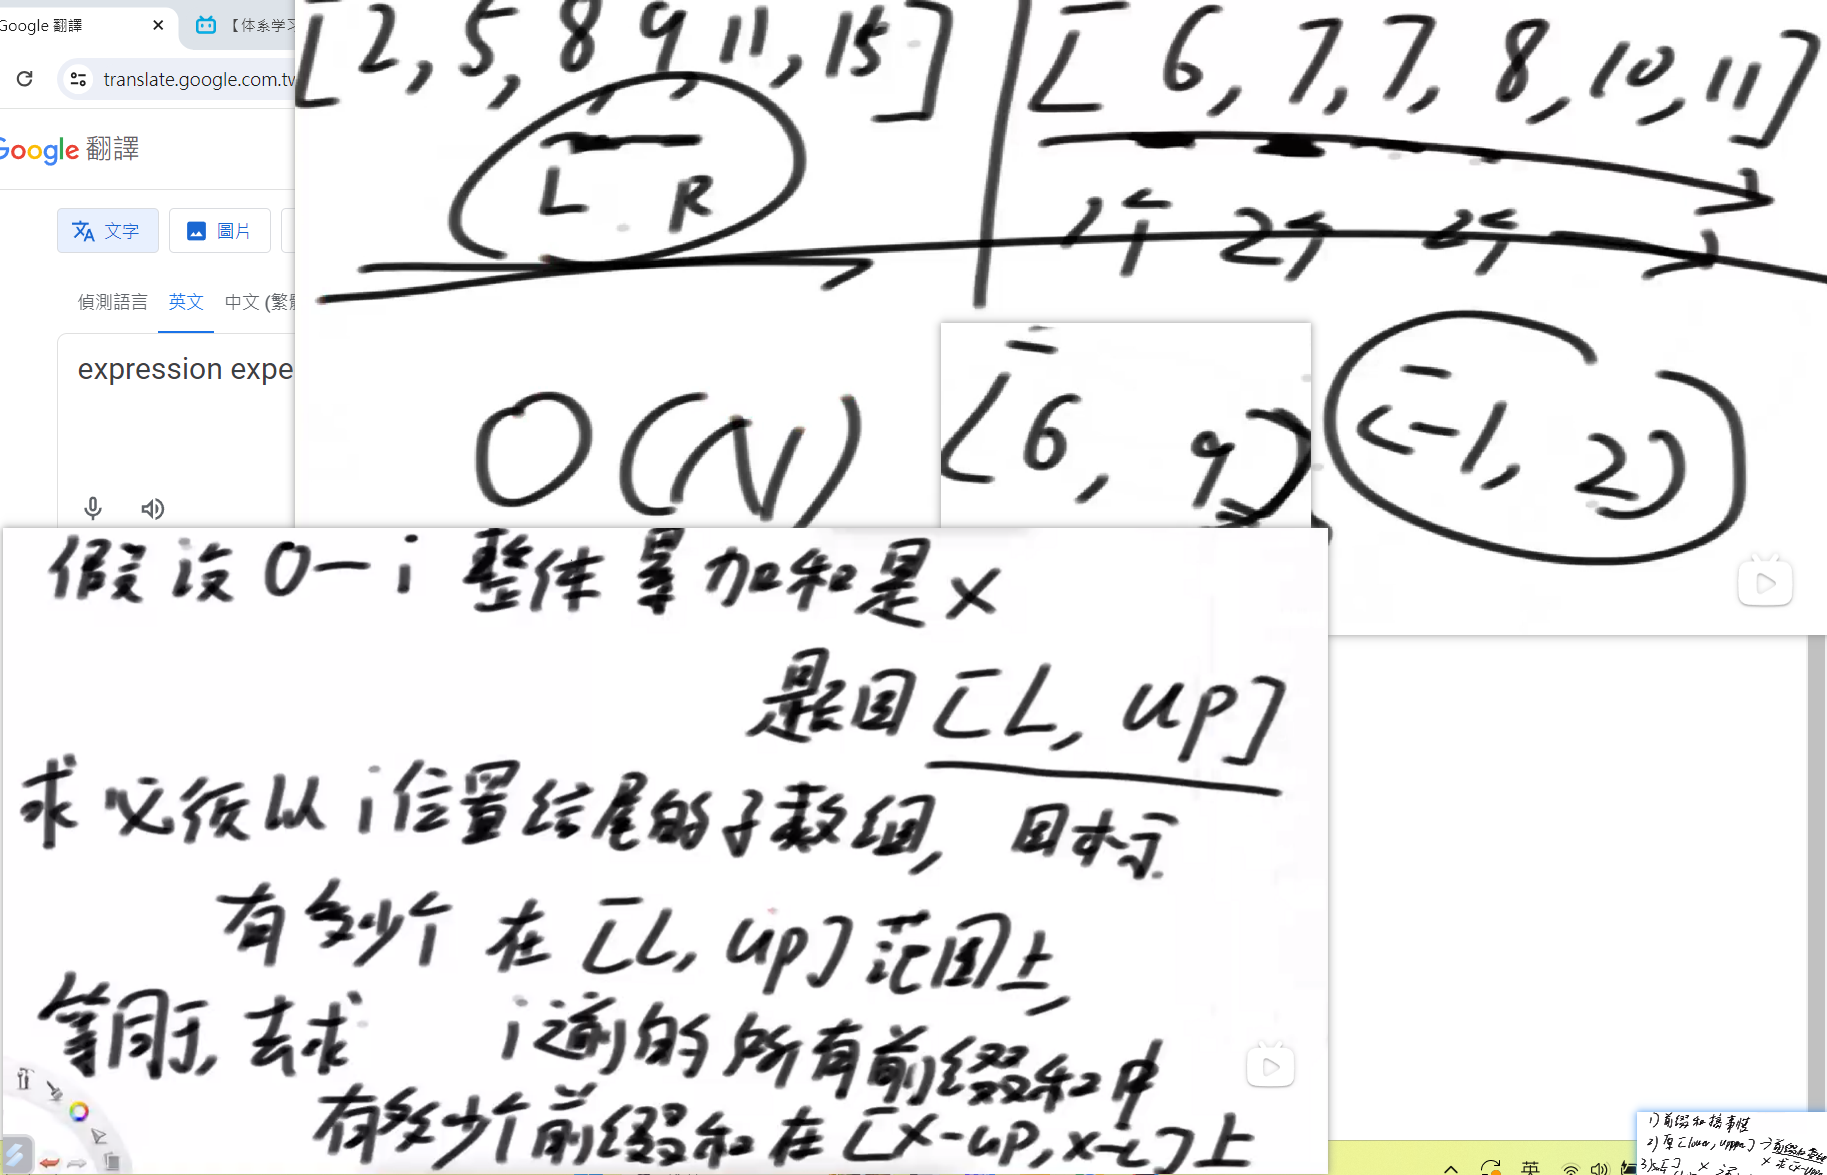 Google 翻譯
【体系学习
translate.google.com.tw
Google 翻譯
文字
圖片
偵測語言 英文 中文 (繁體
expression expe
[2, 5, 8, 9, 11, 15] [6, 7, 7, 8, 10, 11]
L R
1个 2个 2个
O(N)
[6, 9]
[-1, 2]
假设 0-i 整体累加和是 x
范围 [L, up]
求必须以 i 位置结尾的子数组, 目标
有多少个 在 [L, up] 范围上,
等同于, 去求 i 之前的所有前缀和中
有多少个前缀和在 [x-up, x-L] 上
1) 前缀和
2) 原 [lower, upper] →
英